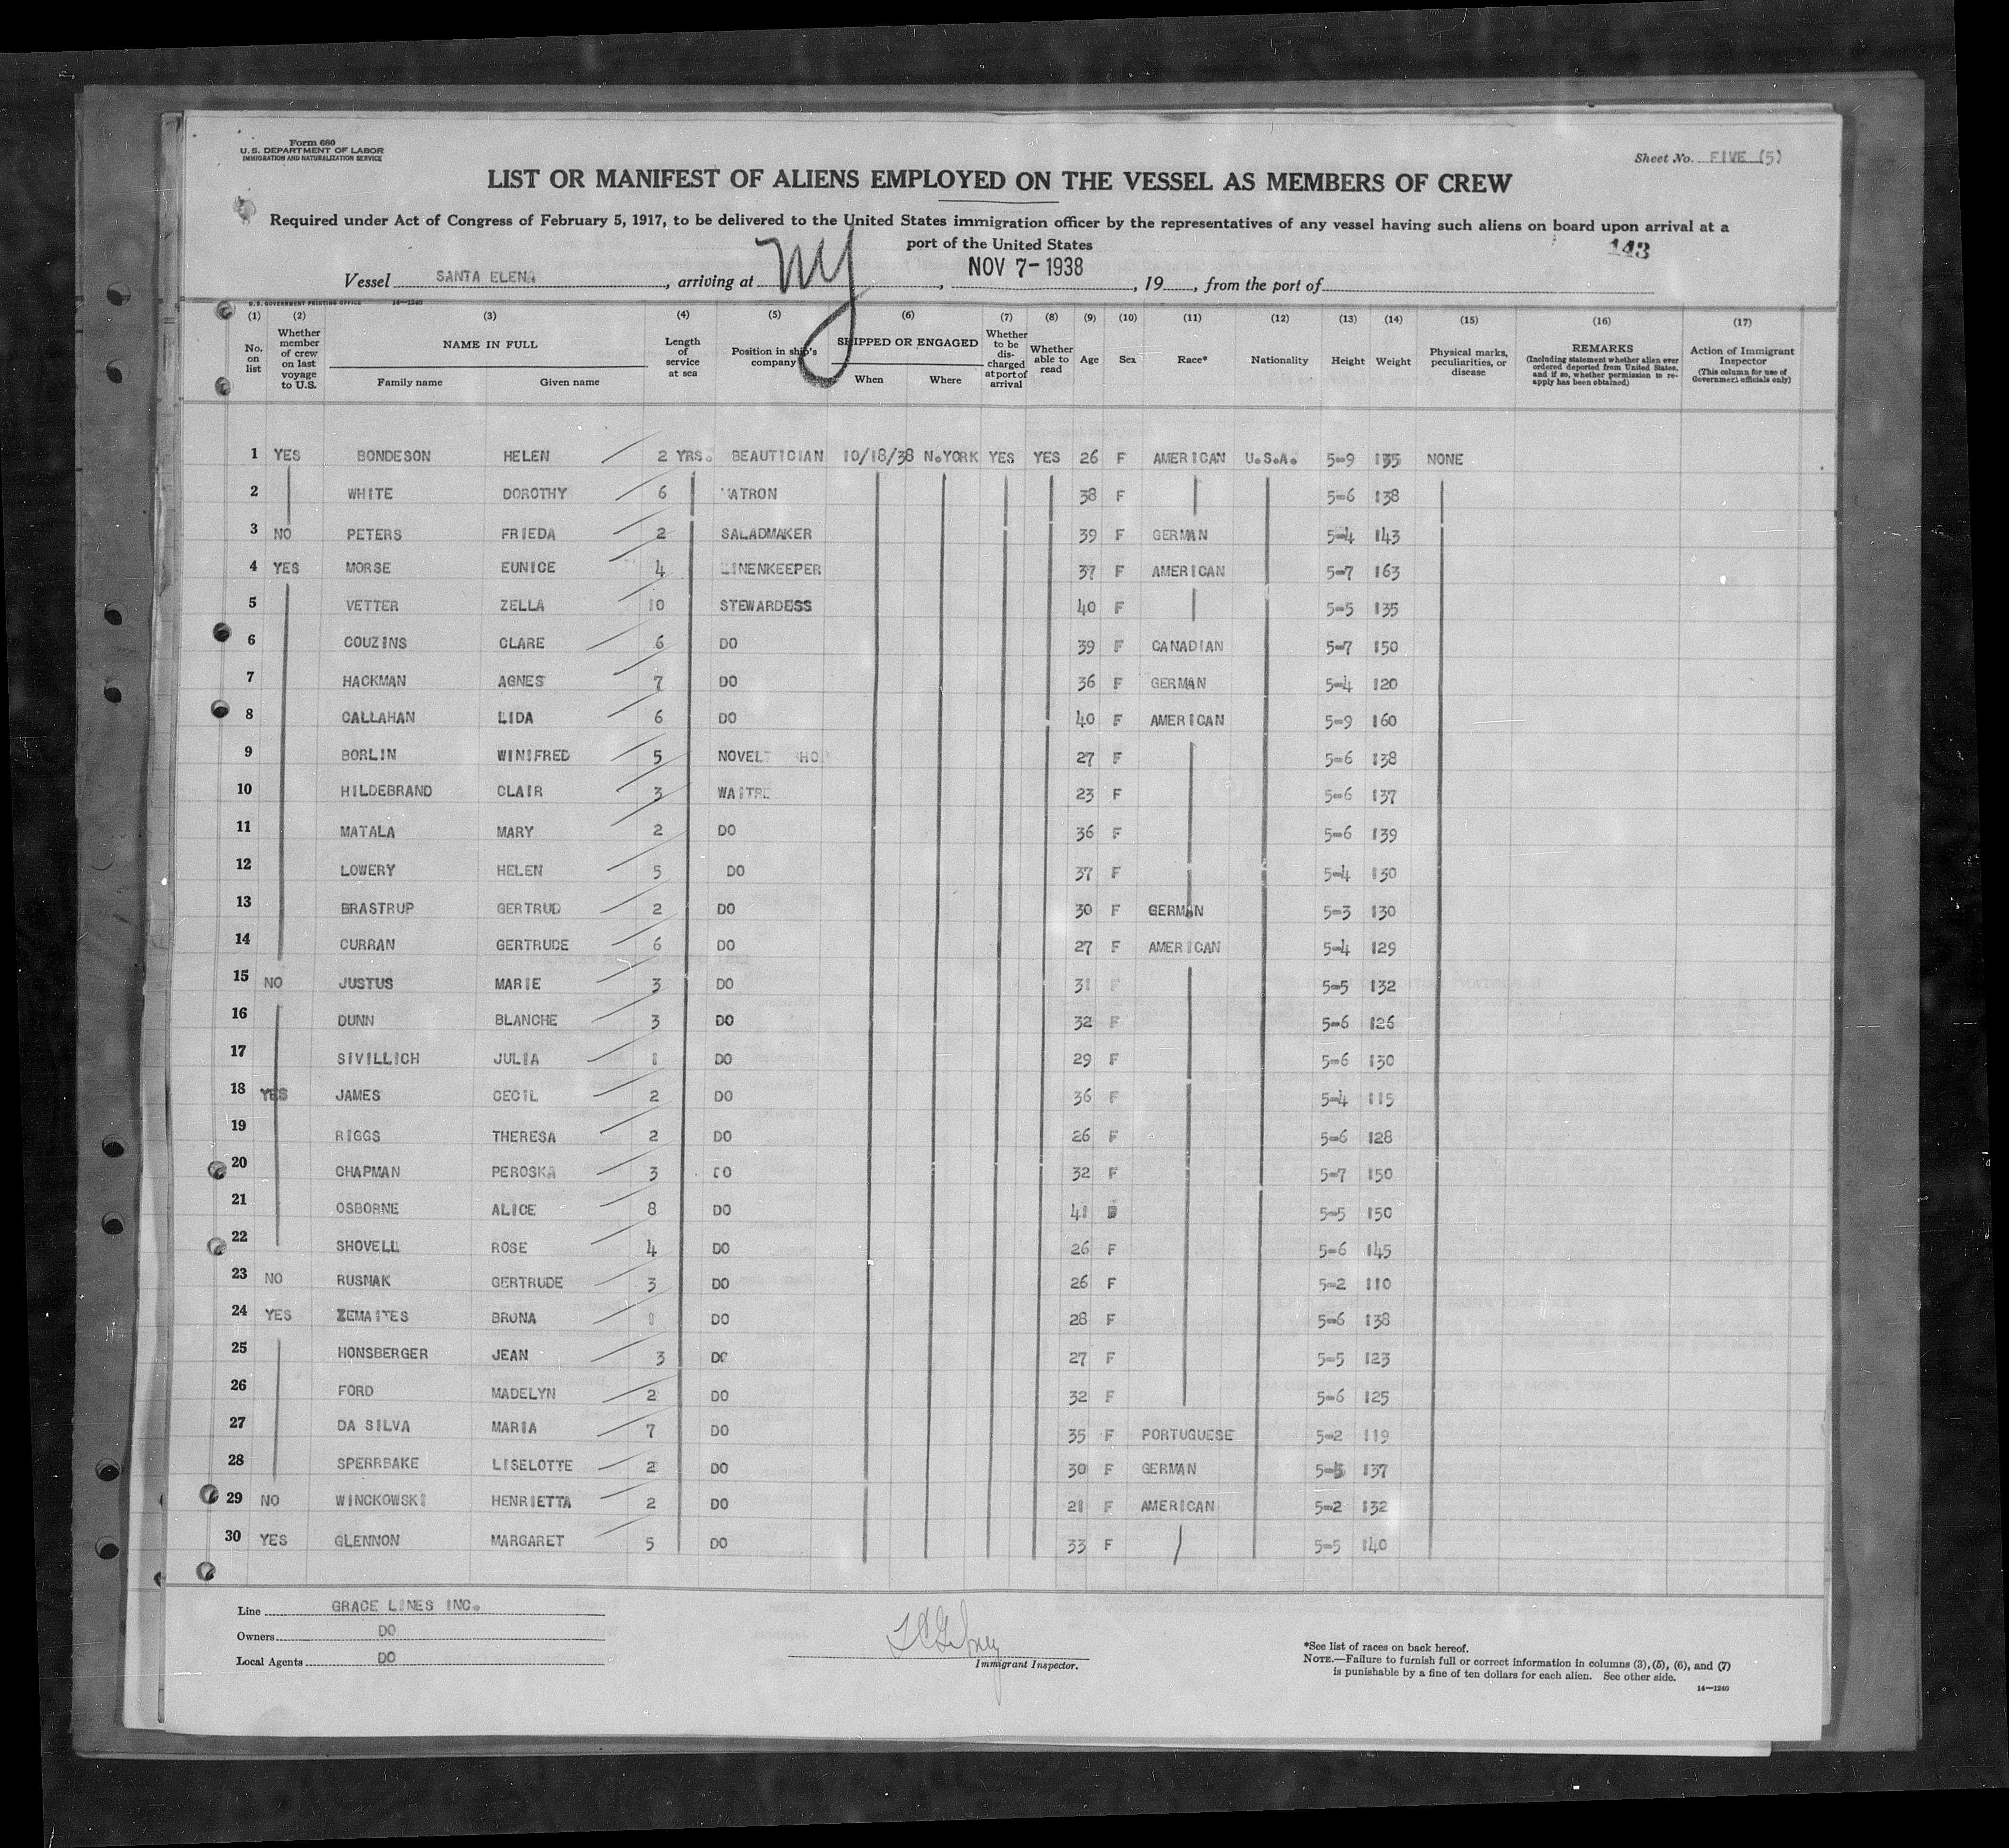 Form 680
U. S. DEPARTMENT OF LABOR
IMMIGRATION AND NATURALIZATION SERVICE
Sheet No. FIVE (5)
LIST OR MANIFEST OF ALIENS EMPLOYED ON THE VESSEL AS MEMBERS OF CREW
Required under Act of Congress of February 5, 1917, to be delivered to the United States immigration officer by the representatives of any vessel having such aliens on board upon arrival at a
port of the United States
143
Vessel SANTA ELENA, arriving at NY, NOV 7-1938, 19, from the port of
U. S. GOVERNMENT PRINTING OFFICE 14-1240
(1) (2) (3) (4) (5) (6) (7) (8) (9) (10) (11) (12) (13) (14) (15) (16) (17)
No. on list
Whether member of crew on last voyage to U.S.
NAME IN FULL
Family name Given name
Length of service at sea
Position in ship's company
SHIPPED OR ENGAGED
When Where
Whether to be discharged at port of arrival
Whether able to read
Age
Sex
Race*
Nationality
Height
Weight
Physical marks, peculiarities, or disease
REMARKS
(Including statement whether alien ever ordered deported from United States, and if so, whether permission to re-apply has been obtained)
Action of Immigrant Inspector
(This column for use of Government officials only)
1 YES BONDESON HELEN 2 YRS. BEAUTICIAN 10/18/38 N.YORK YES YES 26 F AMERICAN U.S.A. 5-9 135 NONE
2 WHITE DOROTHY 6 MATRON 38 F 5-6 138
3 NO PETERS FRIEDA 2 SALADMAKER 39 F GERMAN 5-4 143
4 YES MORSE EUNICE 4 LINENKEEPER 37 F AMERICAN 5-7 163
5 VETTER ZELLA 10 STEWARDESS 40 F 5-5 135
6 COUZINS CLARE 6 DO 39 F CANADIAN 5-7 150
7 HACKMAN AGNES 7 DO 36 F GERMAN 5-4 120
8 CALLAHAN LIDA 6 DO 40 F AMERICAN 5-9 160
9 BORLIN WINIFRED 5 27 F 5-6 138
10 HILDEBRAND CLAIR 3 WAITRE 23 F 5-6 137
11 MATALA MARY 2 DO 36 F 5-6 139
12 LOWERY HELEN 5 DO 37 F 5-4 130
13 BRASTRUP GERTRUD 2 DO 30 F GERMAN 5-3 130
14 CURRAN GERTRUDE 6 DO 27 F AMERICAN 5-4 129
15 NO JUSTUS MARIE 3 DO 31 F 5-5 132
16 DUNN BLANCHE 3 DO 32 F 5-6 126
17 SIVILLICH JULIA 1 DO 29 F 5-6 130
18 YES JAMES CECIL 2 DO 36 F 5-4 115
19 RIGGS THERESA 2 DO 26 F 5-6 128
20 CHAPMAN PEROSKA 3 DO 32 F 5-7 150
21 OSBORNE ALICE 8 DO 41 5-5 150
22 SHOVELL ROSE 4 DO 26 F 5-6 145
23 NO RUSNAK GERTRUDE 3 DO 26 F 5-2 110
24 YES ZEMAITES BRONA 1 DO 28 F 5-6 138
25 HONSBERGER JEAN 3 DO 27 F 5-5 123
26 FORD MADELYN 2 DO 32 F 5-6 125
27 DA SILVA MARIA 7 DO 35 F PORTUGUESE 5-2 119
28 SPERRBAKE LISELOTTE 2 DO 30 F GERMAN 5-5 137
29 NO WINCKOWSKI HENRIETTA 2 DO 21 F AMERICAN 5-2 132
30 YES GLENNON MARGARET 5 DO 33 F 5-5 140
Line GRACE LINES INC.
Owners DO
Local Agents DO
Immigrant Inspector.
*See list of races on back hereof.
NOTE.—Failure to furnish full or correct information in columns (3), (5), (6), and (7)
is punishable by a fine of ten dollars for each alien. See other side.
14-1240